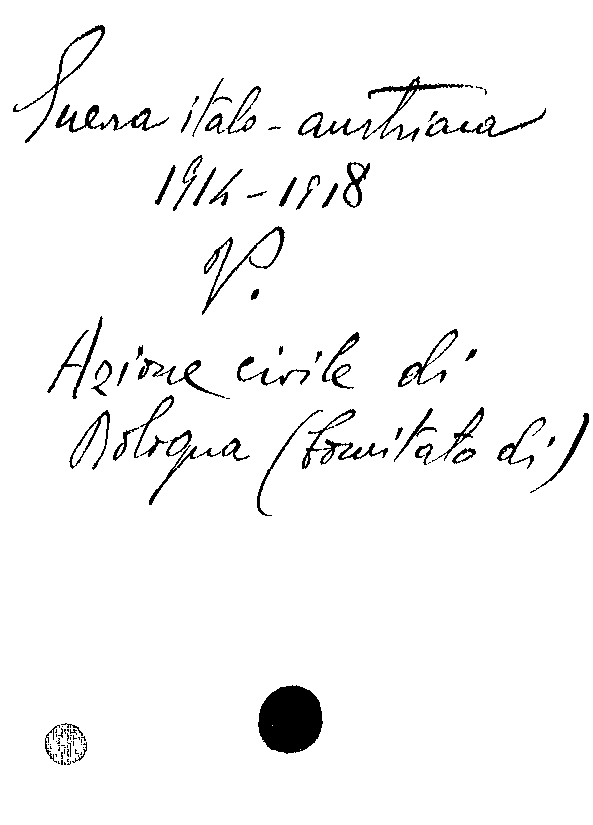 Guerra italo-austriaca
1914-1918
V.
Azione civile di
Bologna (Comitato di)